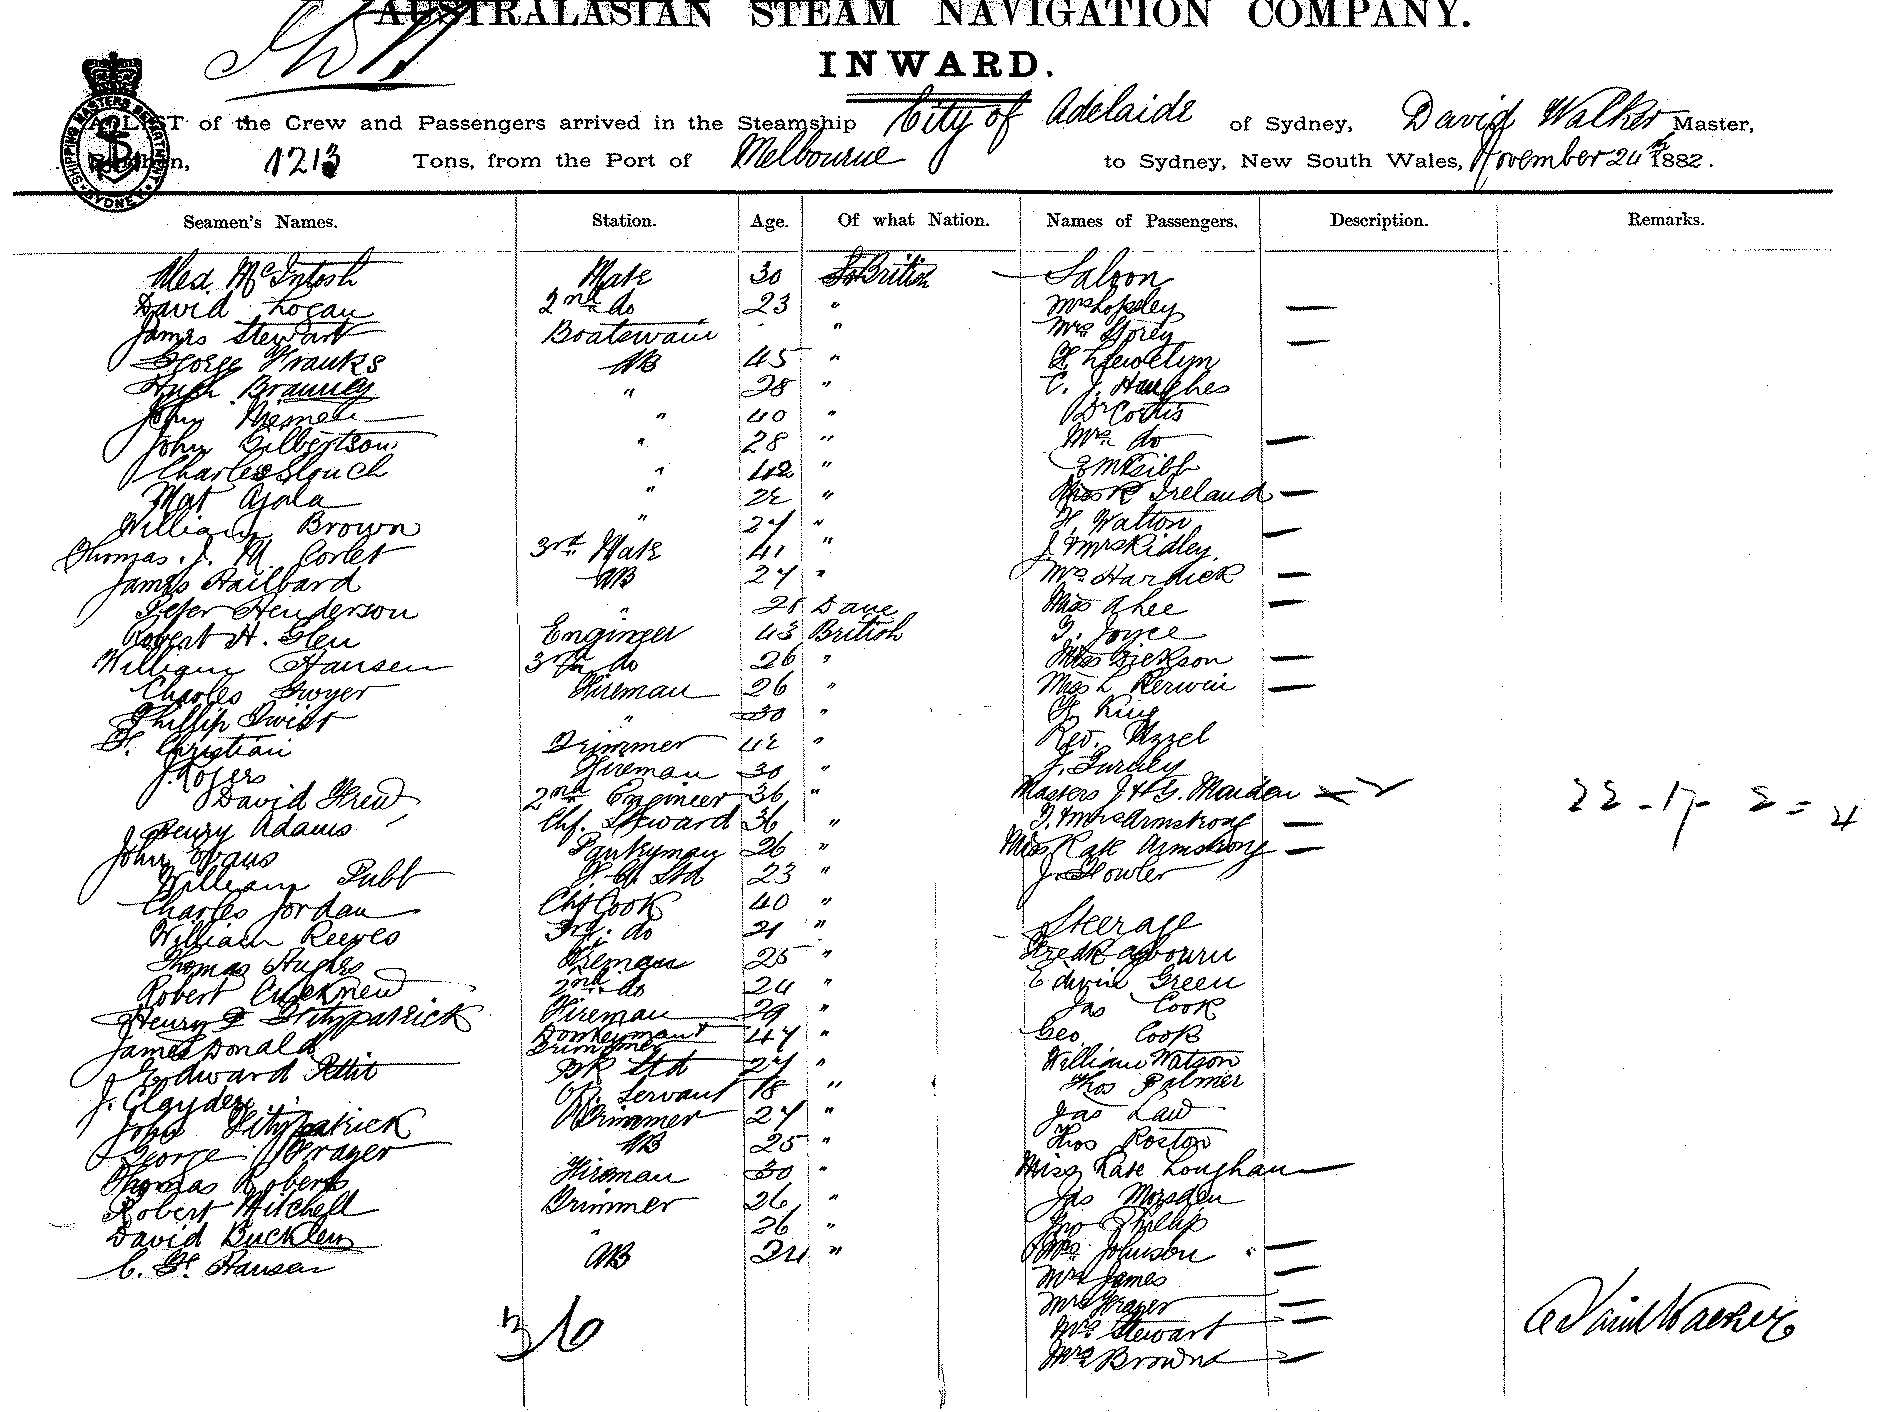 AUSTRALASIAN STEAM NAVIGATION COMPANY.
INWARD.
A LIST of the Crew and Passengers arrived in the Steamship City of Adelaide of Sydney, David Walker Master,
1213 Tons, from the Port of Melbourne to Sydney, New South Wales, November 24th 1882.
SHIPPING MASTERS DEPARTMENT SYDNEY
Seamen's Names. Station. Age. Of what Nation. Names of Passengers. Description. Remarks.
Alex. McIntosh Mate 30 British Saloon
David Logan 2nd do 23 " Mrs
James Stewart Boatswain " Mrs Storey
George Franks AB 45 " Llewelyn
Hugh 28 " C. J. Hughes
John " 40 " Dr Cortis
John Gilbertson " 28 " Mrs do
Charles " 42 "
Mat " 22 " Miss Ireland
William Brown " 27 " Watton
Thomas. J. M. Corlet 3rd Mate 41 " J. & Mrs Ridley.
James Hailbard AB 27 " Mrs Hardick
Peter Henderson " 28 Dane Miss Rhee
Robert H. Glen Engineer 43 British Joyce
William Hansen 3rd do 26 " Miss Dickson
Charles Gwyer Fireman 26 " Miss L Kerwin
Phillip Twist " 30 " King
Christian Trimmer 42 " Rev. Uzzel
J. Rogers Fireman 30 " J. Gurney
David Frew 2nd Engineer 36 " Masters J & G. Maiden 22 - 17 - 2 = 4
Henry Adams Chf. Steward 36 " & Mrs Armstrong
John Evans Pantryman 26 " Miss Kate Armstrong
William Tubb 23 " J. Fowler
Charles Jordan Chf Cook 40 "
William Reeves do 21 " Steerage
Thomas Hughes Fireman 25 " Fredk
Robert 2nd do 24 " Edwin Green
Henry Fitzpatrick Fireman 29 " Jas Cook
James Donald Donkeyman & Trimmer 47 " Geo. Cook
Edward Pettit Std 27 " William Watson
J. Clayden Servant 18 " Thos Palmer
John Fitzpatrick Trimmer 27 " Jas Law
George Frager AB 25 " Thos Roston
Thomas Roberts Fireman 30 " Miss Kate Loughan
Robert Mitchell Trimmer 26 " Jas Marsden
David " 26 " Phillip
C. Hansen AB 24 " Mrs Johnson
Mrs James
Mrs Frager
36 Mrs Stewart David Walker
Mrs Browne